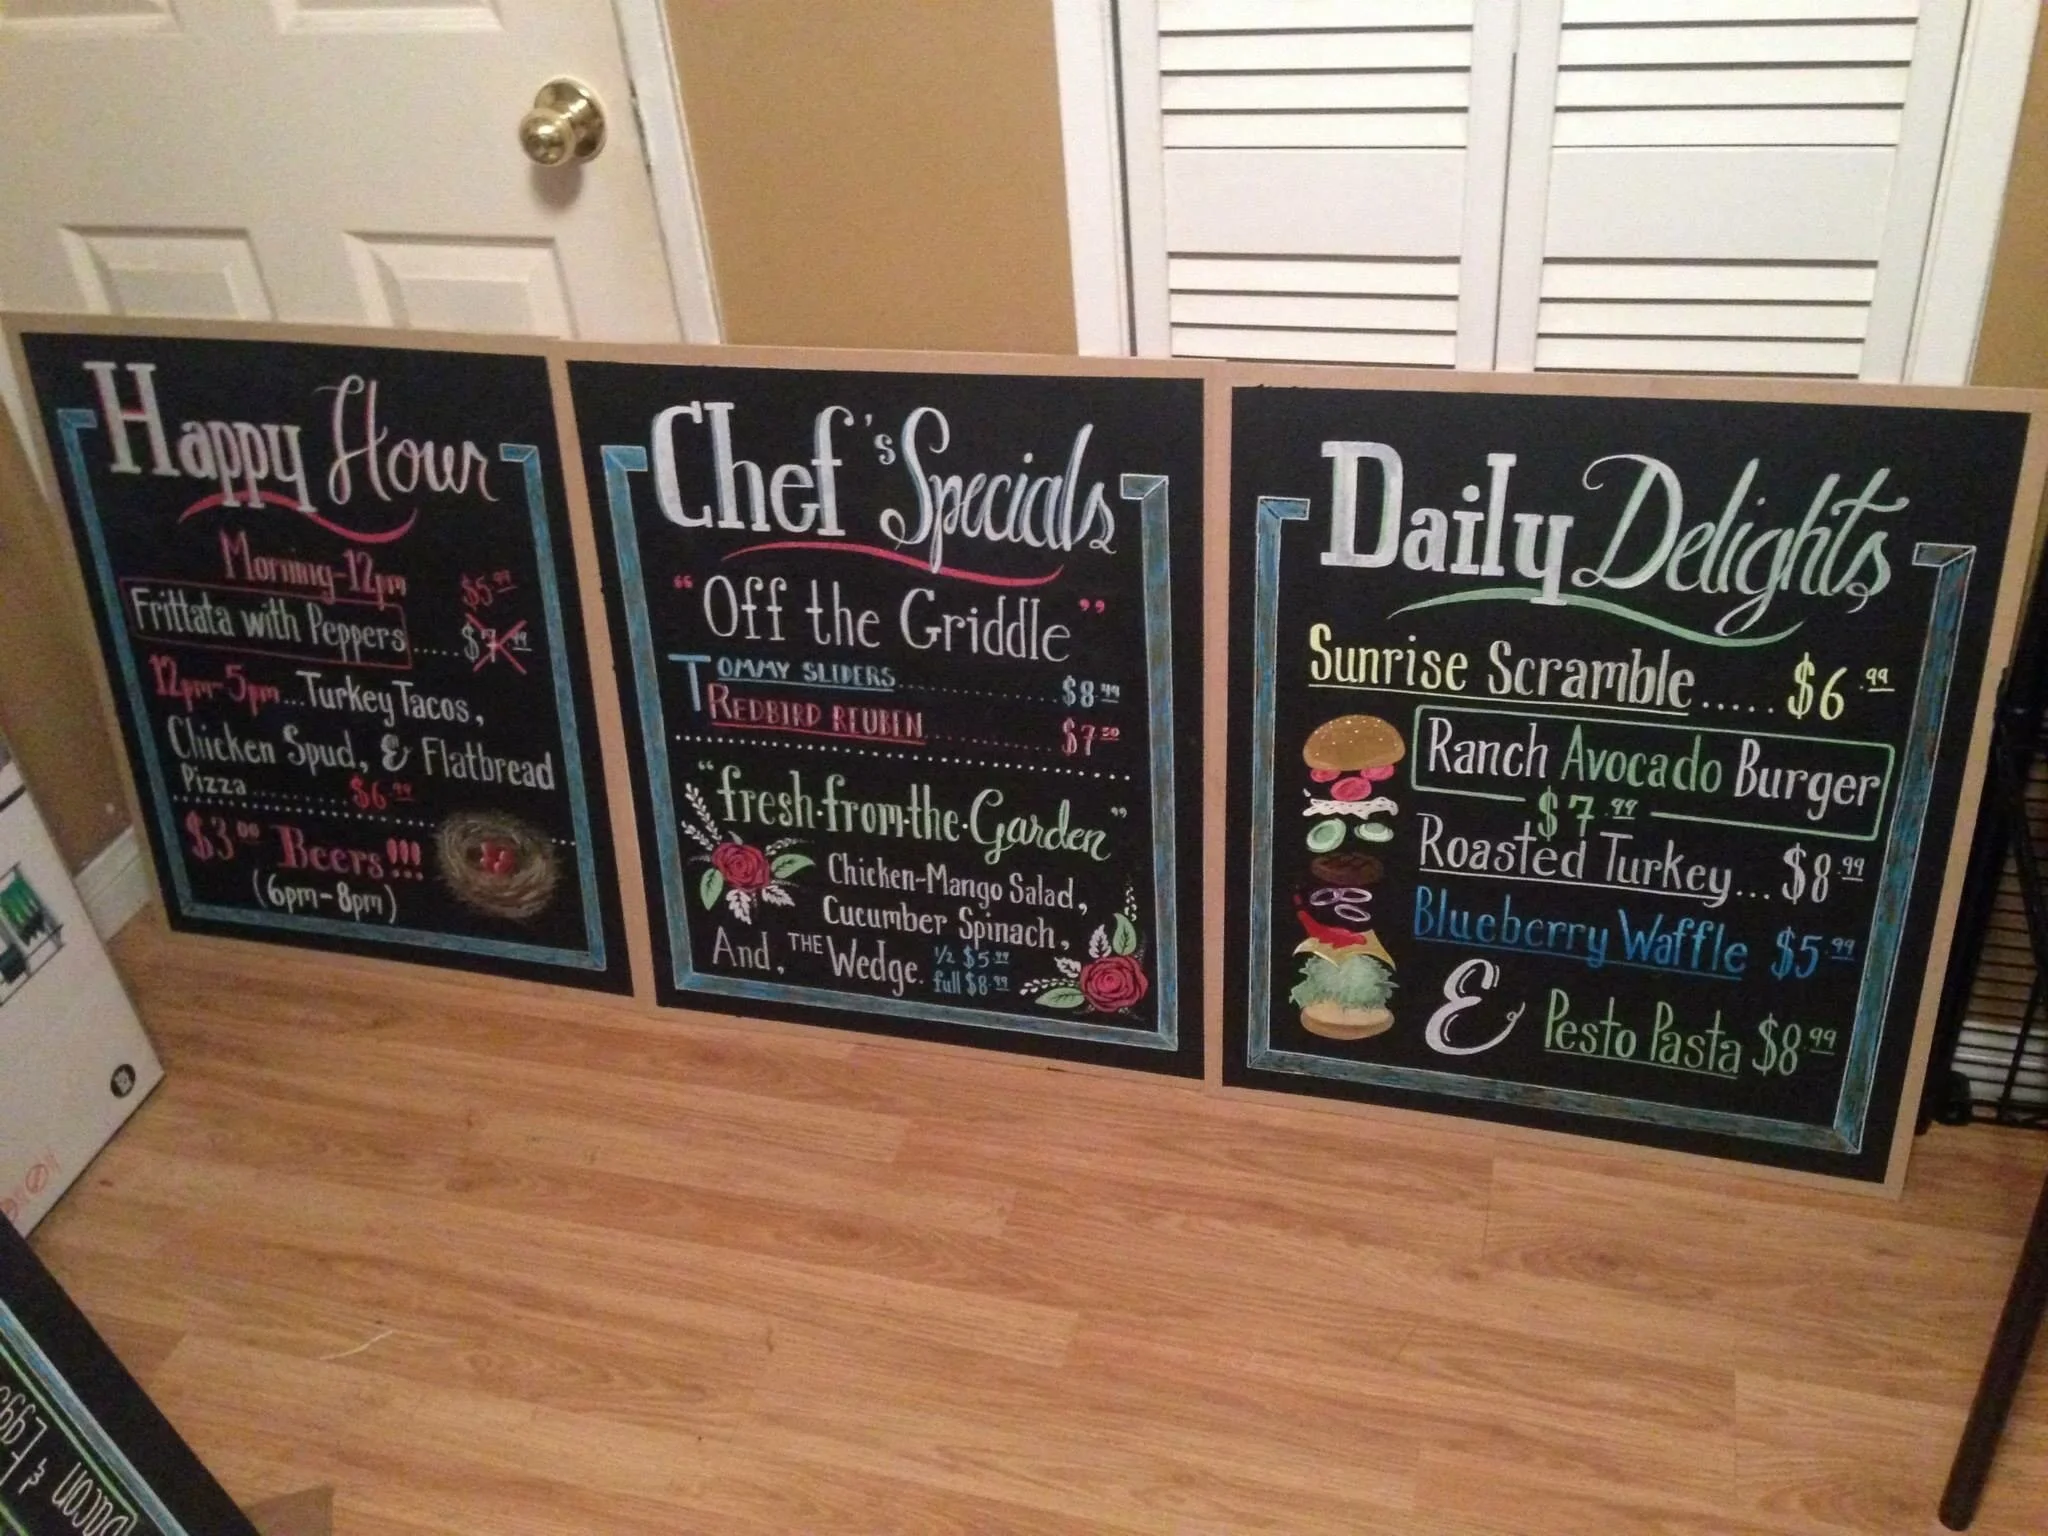 Happy Hour
Morning-12pm $5.99
Frittata with Peppers.....$7.99
12pm-5pm...Turkey Tacos,
Chicken Spud, & Flatbread
Pizza.........$6.99
$3.00 Beers!!!
(6pm-8pm)
Chef's Specials
"Off the Griddle"
TOMMY SLIDERS..............$8.49
REDBIRD REUBEN............$7.50
"fresh·from·the·Garden"
Chicken-Mango Salad,
Cucumber Spinach,
And, THE Wedge. 1/2 $5.99
full $8.99
Daily Delights
Sunrise Scramble.....$6.99
Ranch Avocado Burger
$7.99
Roasted Turkey...$8.99
Blueberry Waffle $5.99
& Pesto Pasta $8.99
Bacon & Eggs